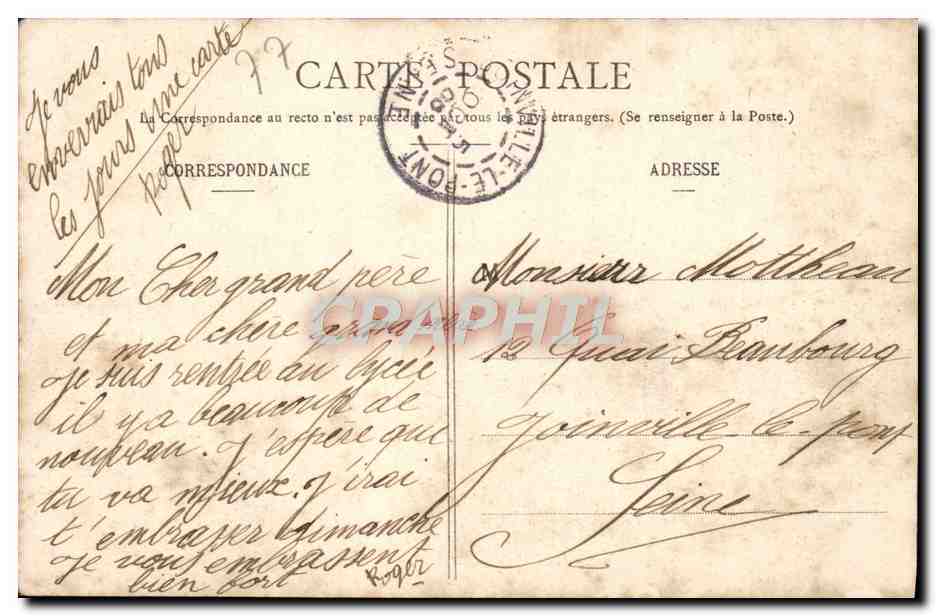 Je vous
enverrais tous
les jours une carte
Roger
77
CARTE POSTALE
La Correspondance au recto n'est pas acceptée par tous les pays étrangers. (Se renseigner à la Poste.)
JOINVILLE-LE-PONT
SEINE
CORRESPONDANCE
ADRESSE
Mon Cher grand père
et ma chère grand mère
Je suis rentrée au lycée
il y a beaucoup de
nouveau. J'espère qui
tu va mieux. J'irai
t'embrasser dimanche
Je vous embrassent
bien fort Roger
CPAPHIL
Monsieur Mottheau
12 Quai Beaubourg
Joinville-le-pont
Seine